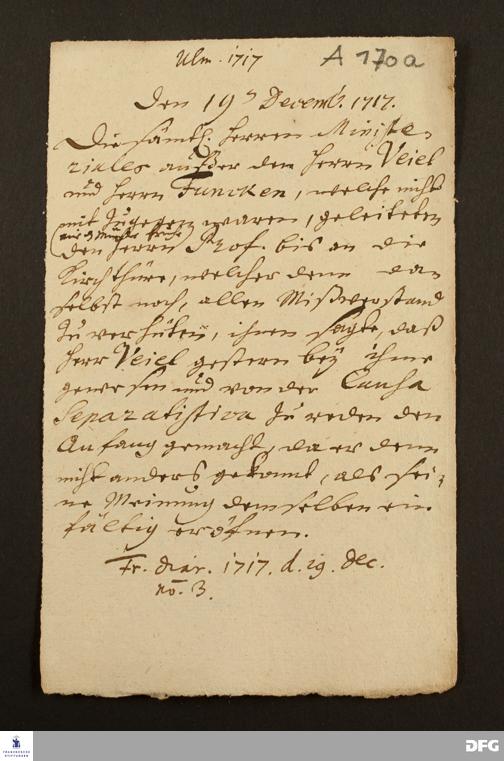 Ulm. 1717
A 170a
Den 19 Decemb. 1717.
Die sämtl. Herren Ministe-
riales außer dem Herrn Veiel
und Herrn Funcken, welche nicht
mit zugegen waren, geleiteten
den Herrn Prof. bis an die
Kirchthüre, welcher denn da
selbst noch, allen Mißverstand
zu verhüten, ihnen sagte, daß
Herr Veiel gestern bey ihme
gewesen und von der Causa
Separatistica zu reden den
Anfang gemacht, da er denn
nicht anders gekonnt, als sei-
ne Meinung demselben ein
fältig eröfnen.
Fr. diar. 1717. d. 19. Dec.
no. 3.
FRANCKESCHE
STIFTUNGEN
DFG